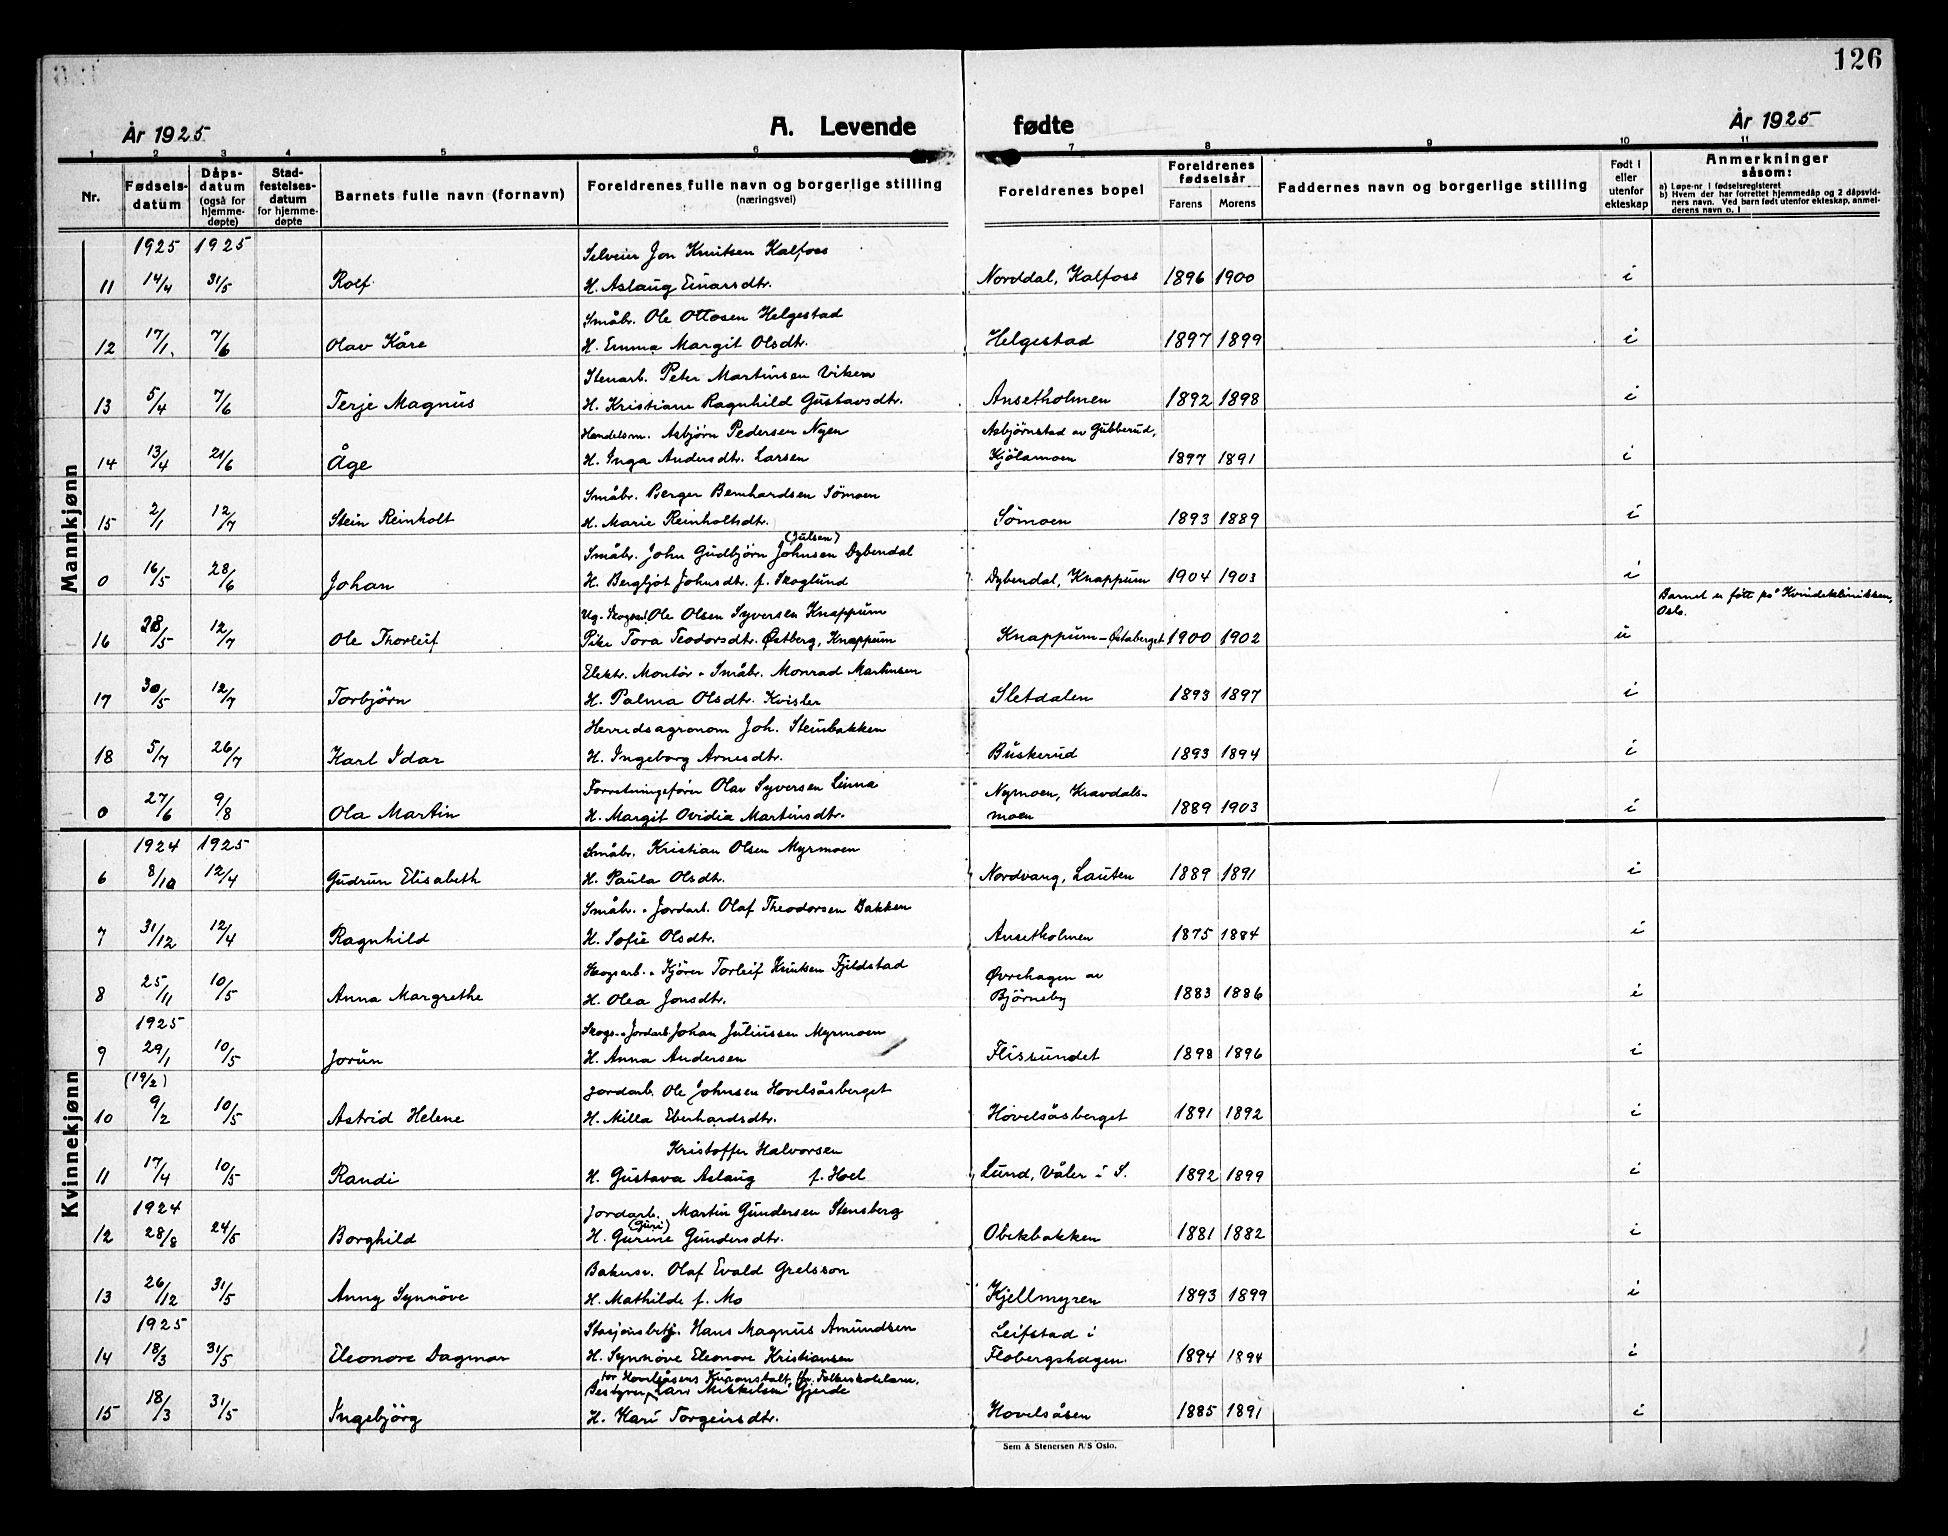 126
År 1925 A. Levende fødte År 1925
1 2 3 4 5 6 7 8 9 10 11
Nr. Fødselsdatum Dåpsdatum (også for hjemmedøpte) Stadfestelsesdatum for hjemmedøpte Barnets fulle navn (fornavn) Foreldrenes fulle navn og borgerlige stilling (næringsvei) Foreldrenes bopel Foreldrenes fødselsår Farens Morens Faddernes navn og borgerlige stilling Født i eller utenfor ekteskap Anmerkninger såsom:
a) Løpe-nr. i fødselsregisteret
b) Hvem der har forrettet hjemmedåp og 2 dåpsvidners navn. Ved barn født utenfor ekteskap, anmelderens navn o. l
Mannkjønn
1925 1925 Selveier Jon Knutsen Kalfoss
11 14/4 31/5 Rolf H. Aslaug Einarsdtr. Norddal, Kalfoss 1896 1900 i
Småbr. Ole Ottosen Helgestad
12 17/1. 7/6 Olav Kåre H. Emma Margit Olsdtr. Helgestad 1897 1899 i
Stenarb. Peter Martinsen Viken
13 5/4 7/6 Terje Magnus H. Kristiane Ragnhild Gustavsdtr. Ansetholmen 1892 1898 i
Handelsm. Asbjørn Pedersen Nyen Asbjørnstad av Gubberud,
14 13/4 21/6 Åge H. Inga Andersdtr. Larsen Kjølamoen 1897 1891 i
Småbr. Berger Bernhardsen Sömoen
15 2/1 12/7 Stein Reinholt H. Marie Reinholtsdtr. Sömoen 1893 1889 i
(Julsen)
Småbr. John Gudbjørn Johnsen Dybendal
0 16/5 28/6 Johan H. Bergljot Johnsdtr. f. Skoglund Dybendal, Knappum 1904 1903 i
Barnet er født på Kvindeklinikken, Oslo.
Ug. Skogsarb. Ole Olsen Syversen Knappum
16 28/5 12/7 Ole Thorleif Pike Tora Teodorsdtr. Østberg, Knappum Knappum-Østaberget 1900 1902 u
Elektr. Montør - Småbr. Monrad Martinsen
17 30/5 12/7 Torbjörn H. Palma Olsdtr. Kvisler Sletdalen 1893 1897 i
Herredsagronom Joh. Steinbakken
18 5/7 26/7 Karl Idar H. Ingeborg Arnesdtr. Buskerud 1893 1894 i
Forretningsfører Olav Syversen Linna Nymoen, Kravdals-
0 27/6 9/8 Ola Martin H. Margit Ovidia Martinsdtr. moen 1889 1903 i
Kvinnekjønn
1924 1925 Småbr. Kristian Olsen Myrmoen
6 8/10 12/4 Gudrun Elisabeth H. Paula Olsdtr. Nordvang, Lauten 1889 1891 i
Småbr. - Jordarb. Olaf Theodorsen Bakken
7 31/12 12/4 Ragnhild H. Sofie Olsdtr. Ansetholmen 1875 1884 i
Skogsarb. - Kjörer Torleif Knutsen Fjeldstad Øvrehagen av
8 25/11 10/5 Anna Margrethe H. Olea Jonsdtr. Bjørneby 1883 1886 i
1925 Skogs.- Jordarb. Johan Juliussen Myrmoen
9 29/1 10/5 Jorun H. Anna Andersen Flissundet 1898 1896 i
(19/2) Jordarb. Ole Johnsen Hovelsåsberget
10 9/2 10/5 Astrid Helene H. Milla Eberhardsdtr. Hovelsåsberget 1891 1892 i
Kristoffer Halvorsen
11 17/4 10/5 Randi H. Gustava Aslaug f. Hoel Lund, Våler i S. 1892 1899 i
1924 Jordarb. Martin Gundersen Stensberg
(Guri)
12 28/8 24/5 Borghild H. Gurine Gundersdtr. Obekbakken 1881 1882 i
Bakersv. Olaf Evald Grelsson
13 26/12 31/5 Anny Synnöve H. Mathilde f. Mo Kjellmyren 1893 1899 i
1925 Stasjonsbetj. Hans Magnus Amundsen Leifstad i
14 18/3 31/5 Eleonore Dagmar H. Synnöve Eleonore Kristiansen Flobergshagen. 1894 1894 i
for Hovelsåsens Kuranstalt, fv. Folkeskolelærer,
Bestyrer Lars Mikkelsen Gjerde
15 18/3 31/5 Ingebjörg H. Kari Torgeirsdtr. Hovelsåsen 1885 1891 i
Sem & Stenersen A/S Oslo.